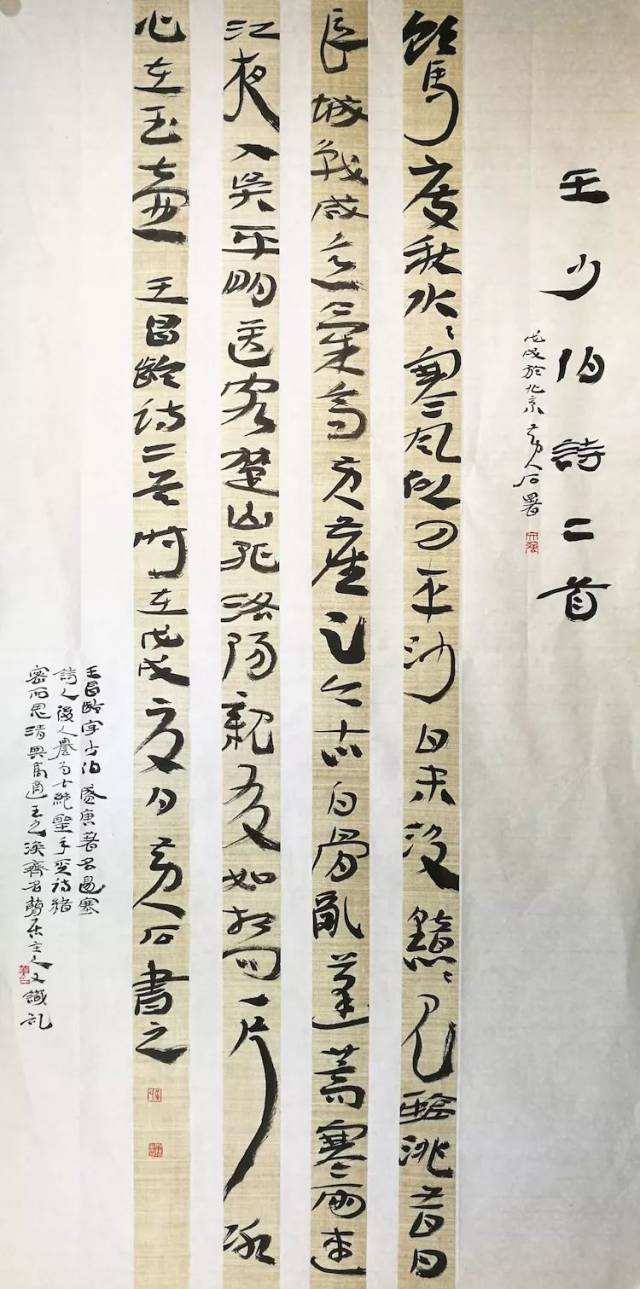 王少伯詩二首
戊戌於北京黄人石署
飲馬度秋水〻寒風似刀平沙日未没黯〻見臨洮昔日
長城戰咸言意氣高黄塵足今古白骨亂蓬蒿寒雨連
江夜入吳平明送客楚山孤洛陽親友如相問一片冰
心在玉壺 王昌齡詩二首時在戊戌夏月黄人石書之
王昌齡字少伯盛唐著名邊塞
詩人後人譽為七絕聖手其詩緒
密而思清與高適王之渙齊名主人又識